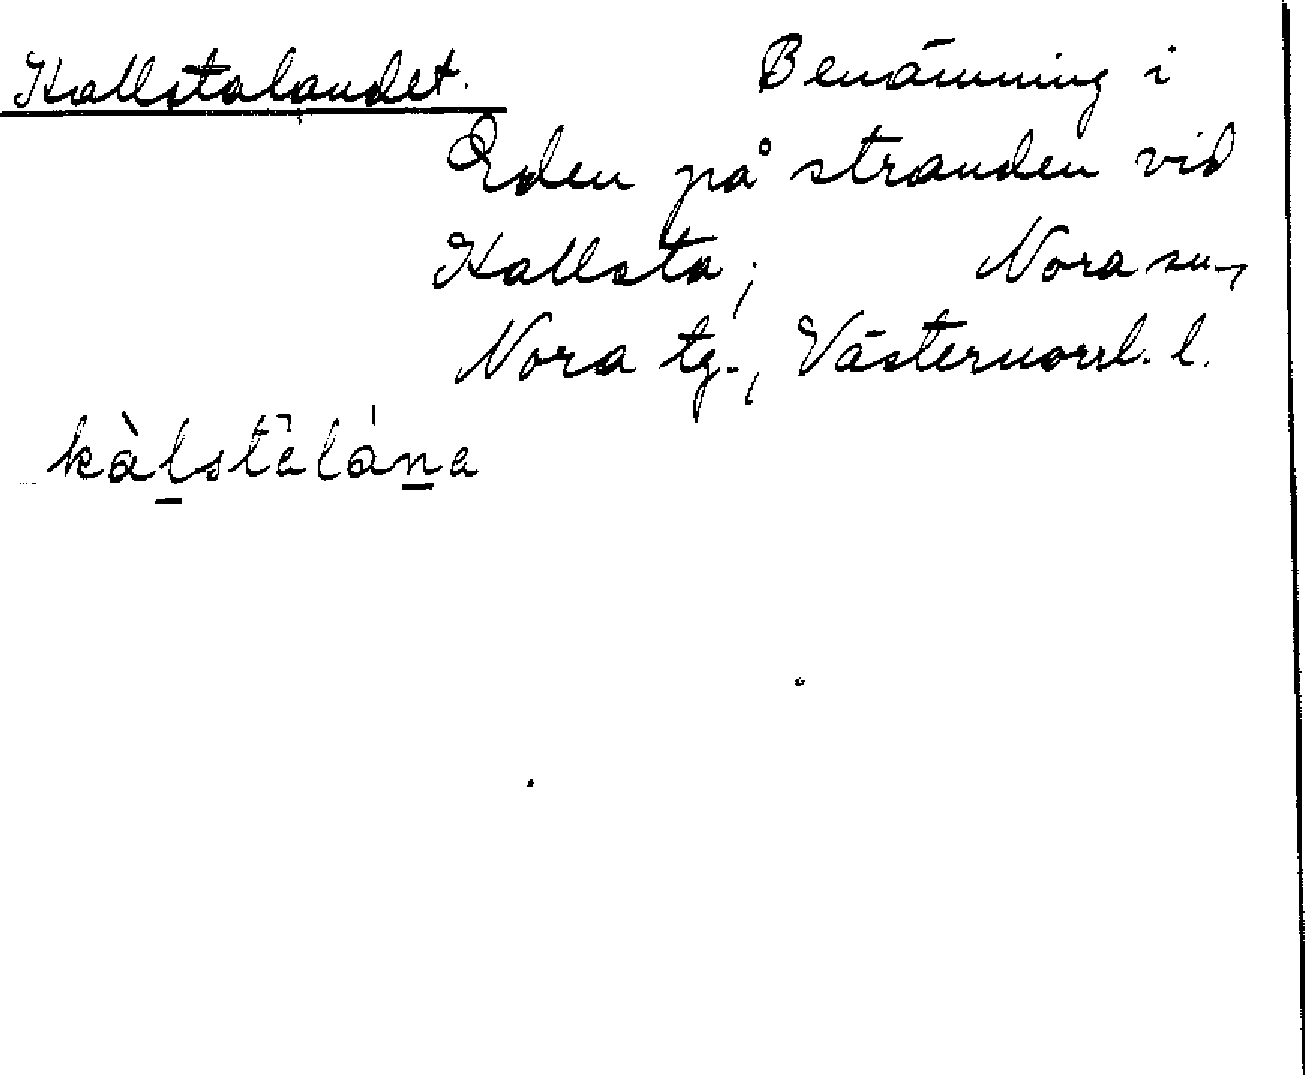 Kallstalandet. Benämning i
Eden på stranden vid
Kallsta; Nora sn,
Nora tg., Västernorrl. l.
kàl̲stēláṉa